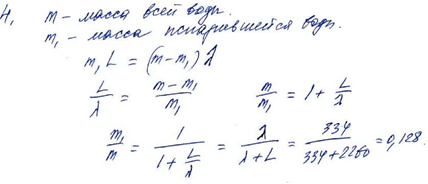 4, m – масса всей воды.
m₁ – масса испарившейся воды.
m₁L = (m–m₁)λ
L/λ = (m–m₁)/m₁   m/m₁ = 1 + L/λ
m₁/m = 1/(1 + L/λ) = λ/(λ+L) = 334/(334+2260) = 0,128.